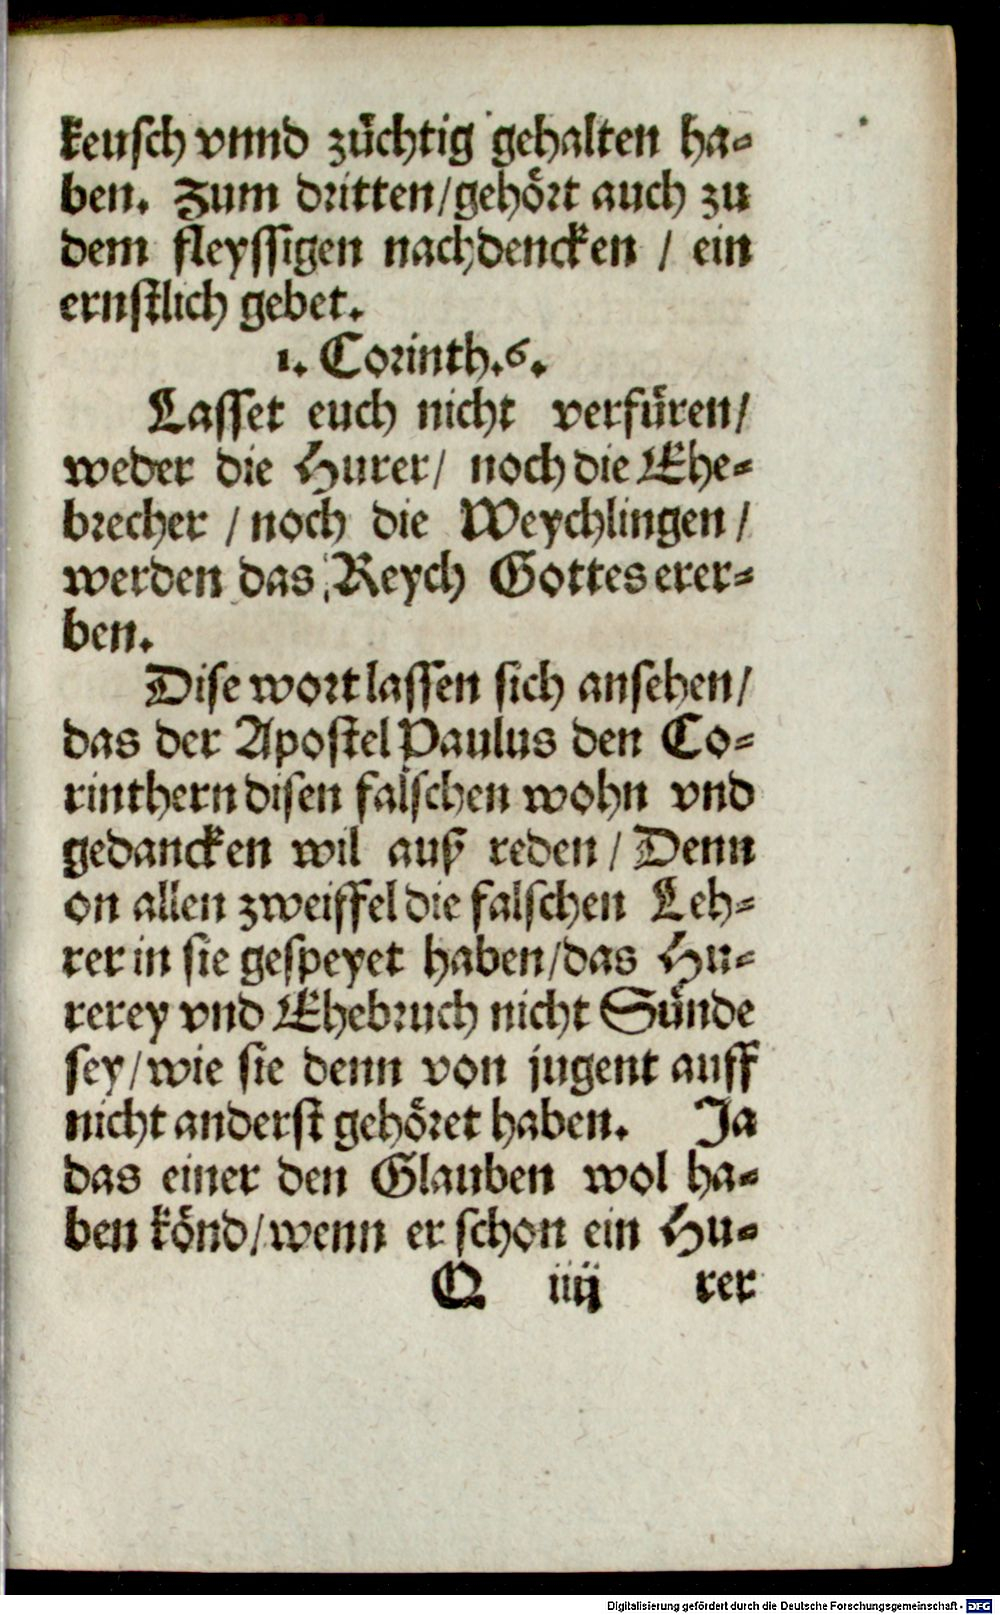 keusch vnnd züchtig gehalten ha-
ben. Zum dritten/gehört auch zu
dem fleyssigen nachdencken / ein
ernstlich gebet.
1. Corinth.6.
Lasset euch nicht verfüren/
weder die Hurer/ noch die Ehe-
brecher / noch die Weychlingen /
werden das Reych Gottes erer-
ben.
Dise wort lassen sich ansehen/
das der Apostel Paulus den Co-
rinthern disen falschen wohn vnd
gedancken wil auß reden / Denn
on allen zweiffel die falschen Leh-
rer in sie gespeyet haben/das Hu-
rerey vnd Ehebruch nicht Sünde
sey/wie sie denn von jugent auff
nicht anderst gehöret haben. Ja
das einer den Glauben wol ha-
ben könd/wenn er schon ein Hu-
Q iiij rer
Digitalisierung gefördert durch die Deutsche Forschungsgemeinschaft - DFG